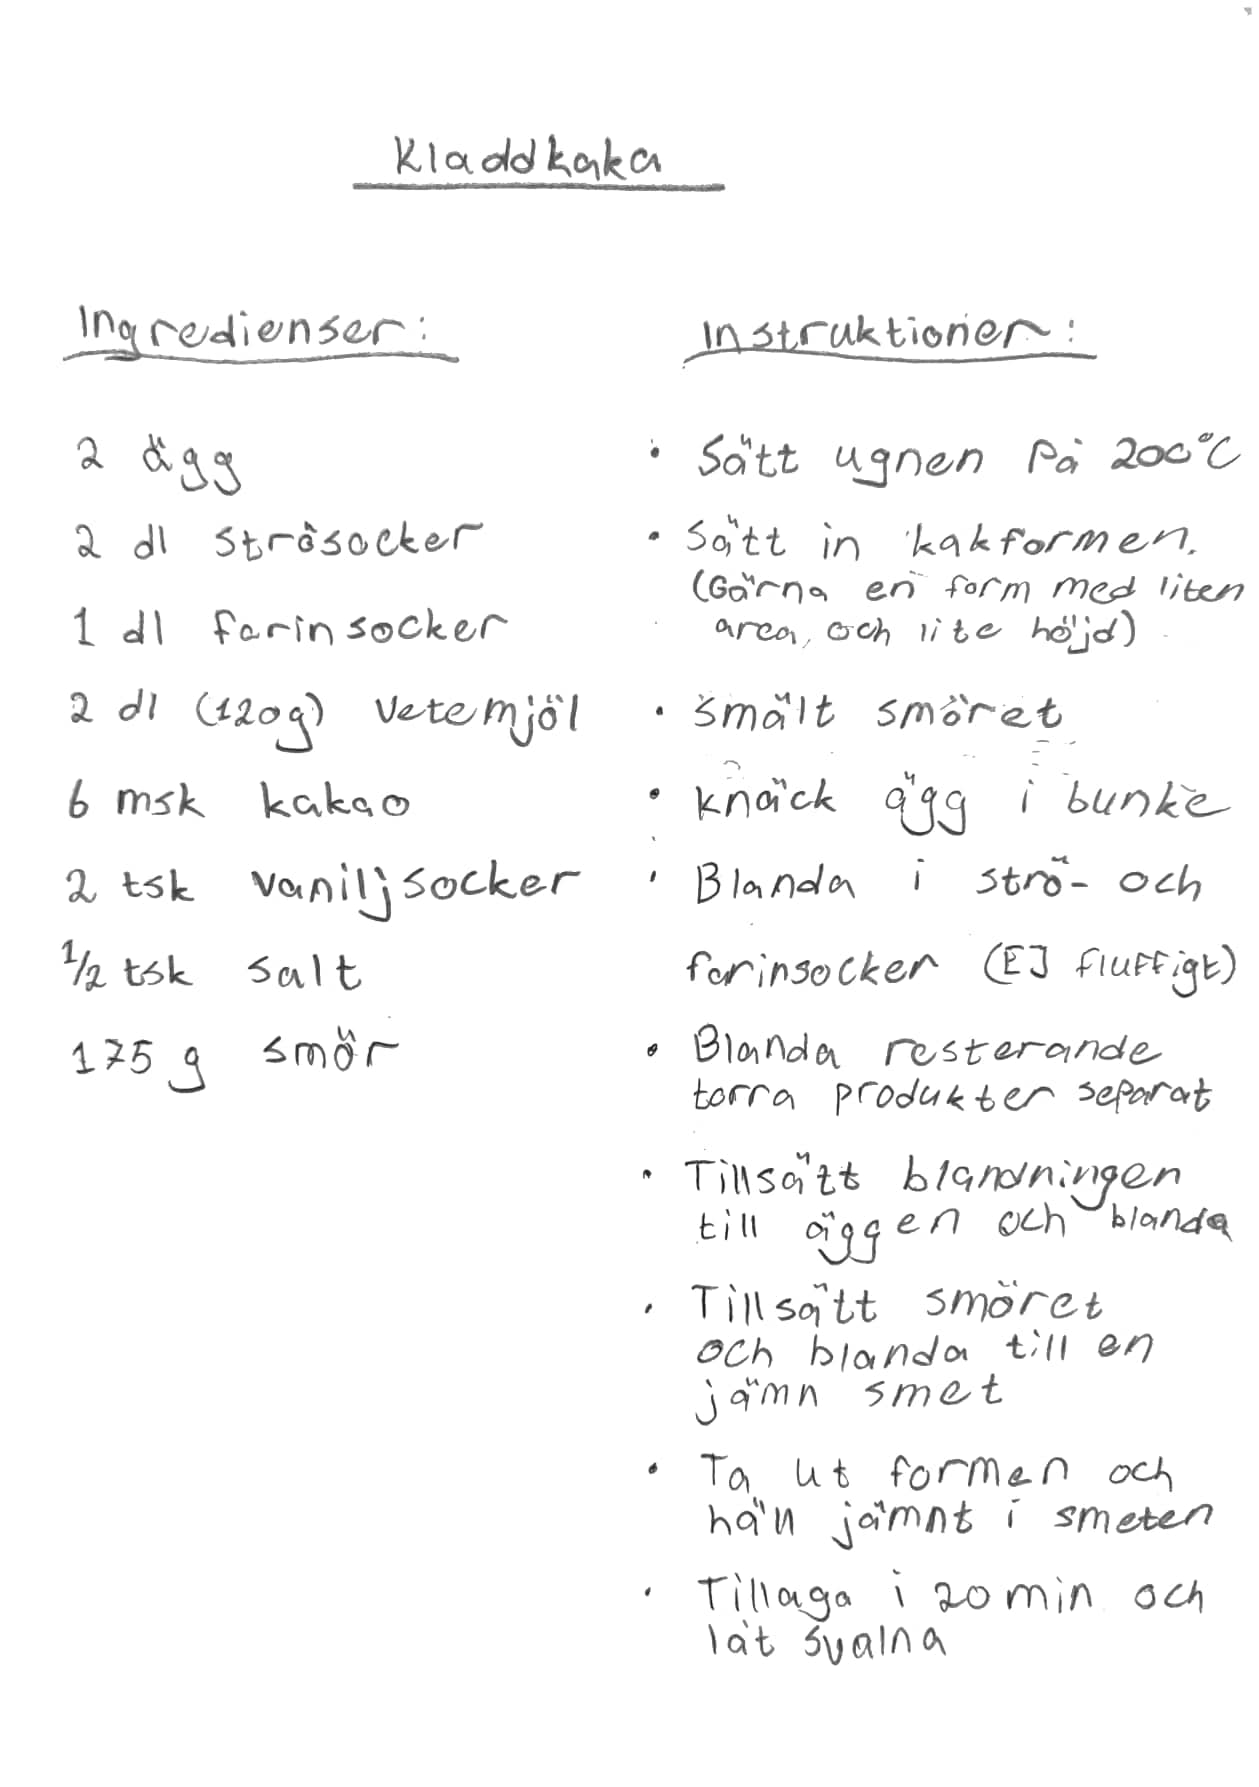 Kladdkaka
Ingredienser:
2 ägg
2 dl strösocker
1 dl farinsocker
2 dl (120g) vetemjöl
6 msk kakao
2 tsk vaniljsocker
1/2 tsk salt
175 g smör
Instruktioner:
• Sätt ugnen på 200°C
• Sätt in kakformen.
(Gärna en form med liten
area, och lite höjd)
• Smält smöret
• Knäck ägg i bunke
• Blanda i strö- och
farinsocker (EJ fluffigt)
• Blanda resterande
torra produkter separat
• Tillsätt blandningen
till äggen och blanda
• Tillsätt smöret
och blanda till en
jämn smet
• Ta ut formen och
häll jämnt i smeten
• Tillaga i 20 min och
låt svalna